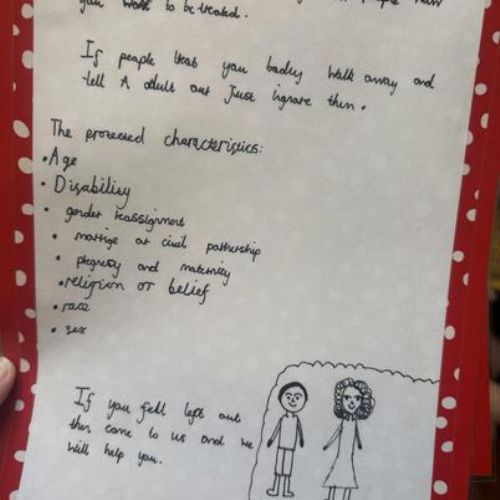 you want to be treated.
If people treat you badly walk away and
tell A adult out Just lignore them.
The protected characteristics:
• Age
• Disability
• gender reassignment
• mattige or civil partnership
• pregnacy and maternity
• religion or belief
• race
• sex
If you fell left out
then come to us and we
will help you.